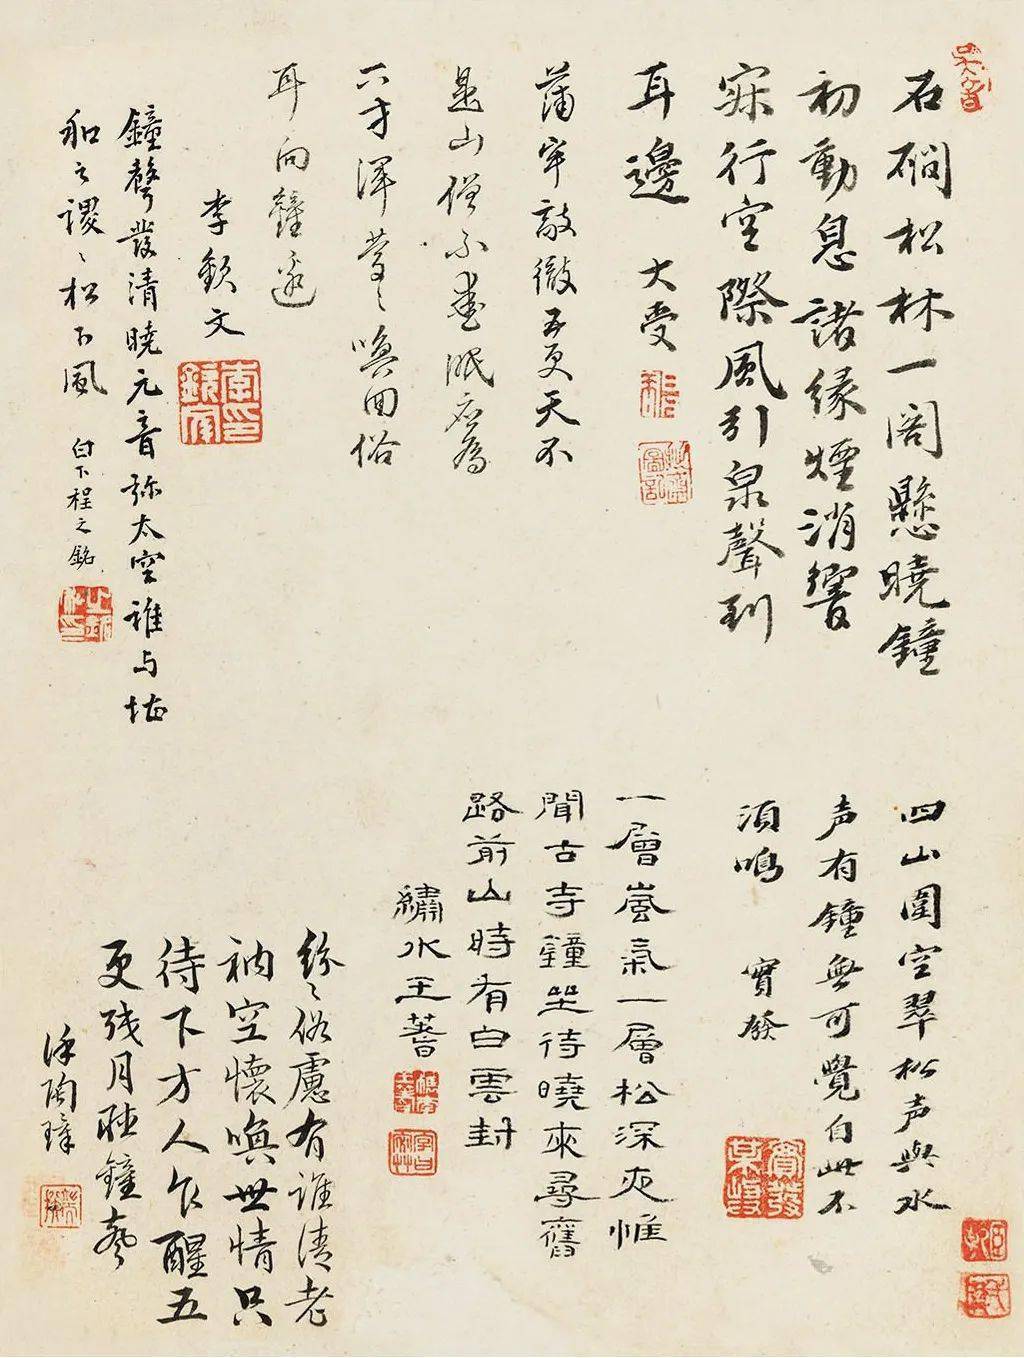 石磵松林一阁懸曉鐘
初動息諸缘煙消響
寂行空際風引泉聲到
耳邊　大受
蒲牢敲徹五更天不
是山僧不愛眠應為
下方渾夢夢喚回俗
耳向鐘邊
李欽文
鐘聲發清曉元音弥太空谁与恬
和之謖謖松下風　白下程之銘
四山圍空翠松声與水
声有鐘無可覺自此不
須鳴　實發
一層嵐氣一層松深夾惟
聞古寺鐘坐待曉來尋舊
路前山時有白雲封
繡水王蓍
紛紛俗慮有谁清老
衲空懷喚世情只
待下方人乍醒五
更残月聽鐘聲
徐陶璋